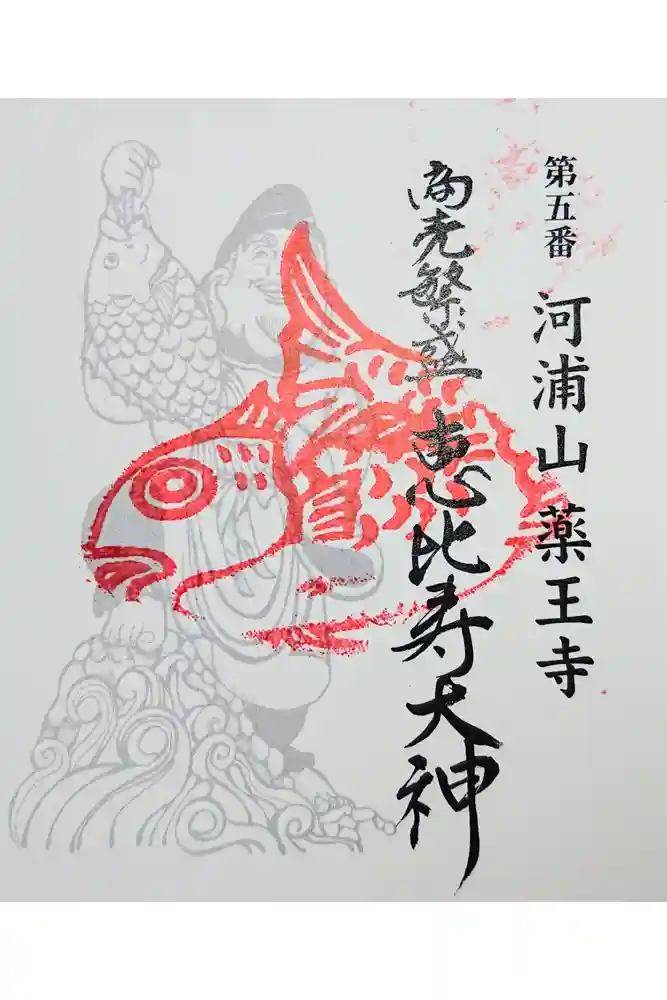 第五番 河浦山 薬王寺
商売繁盛 恵比寿大神